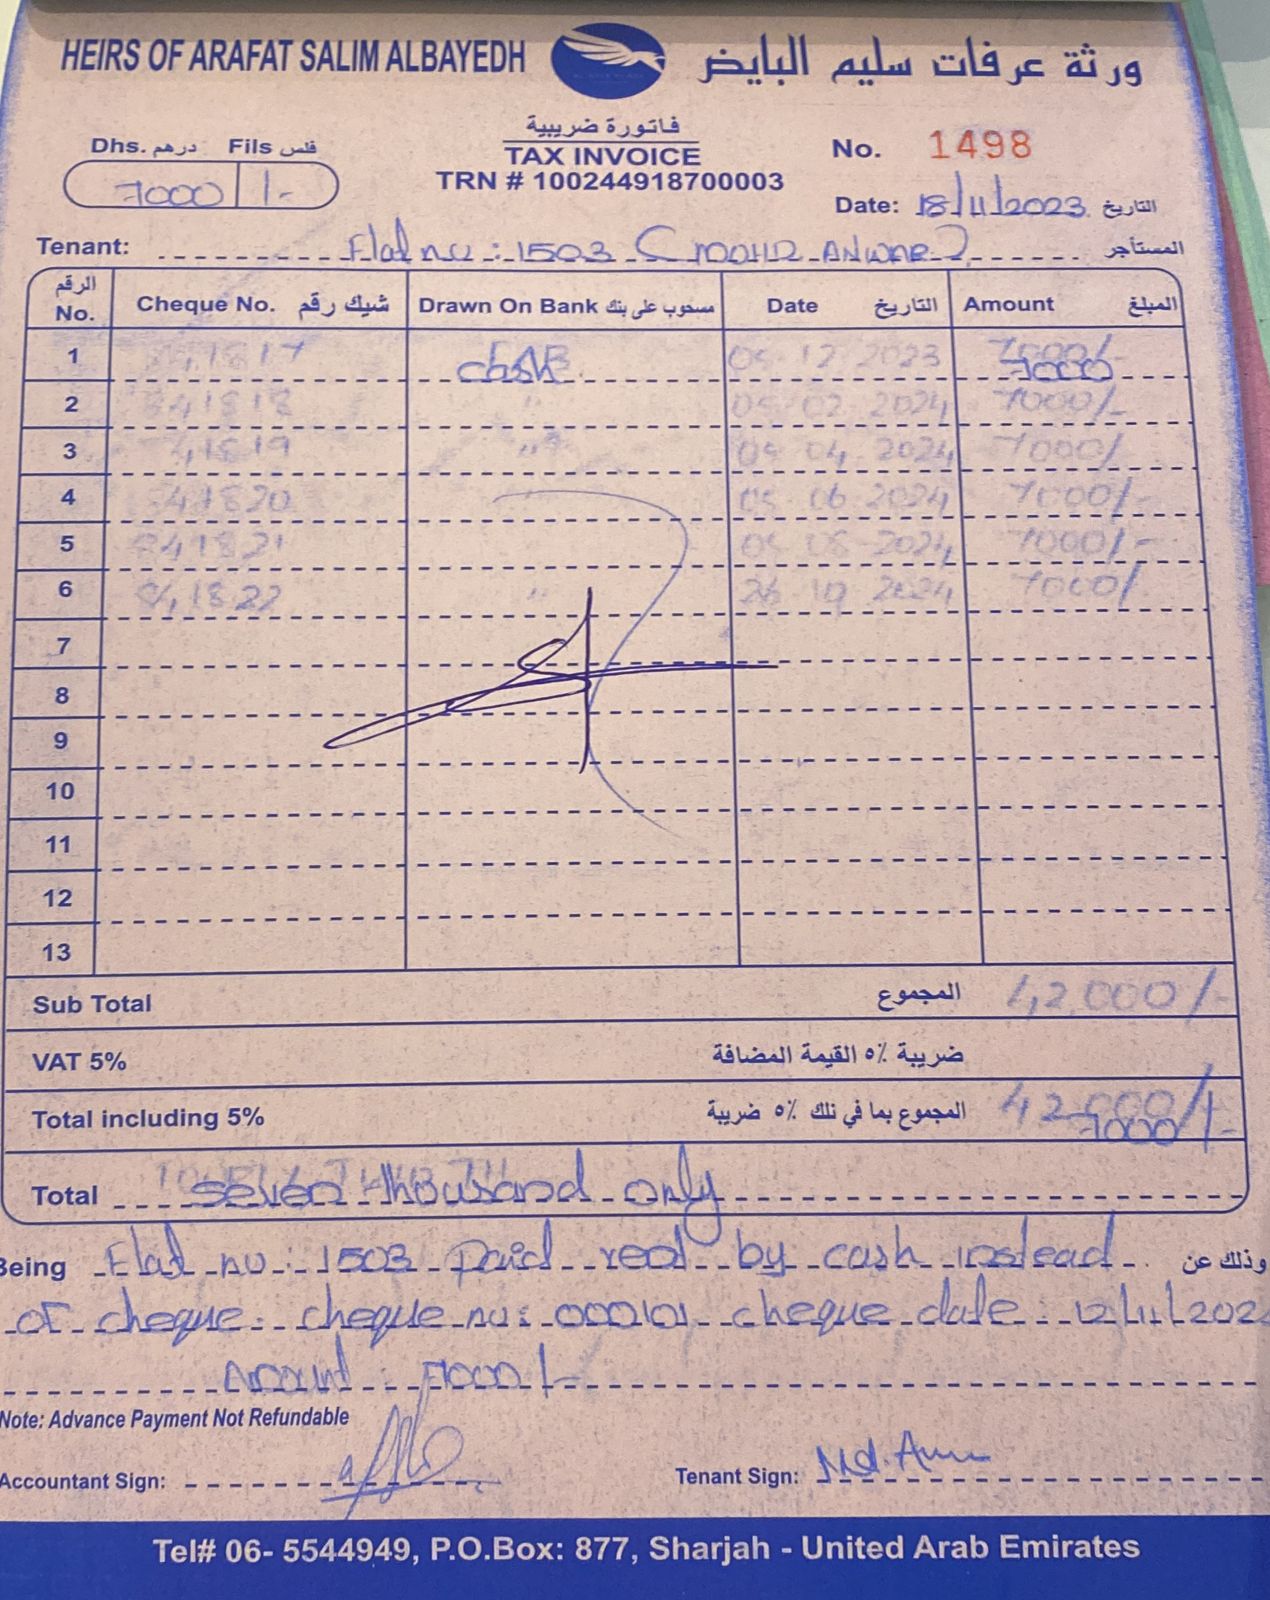 HEIRS OF ARAFAT SALIM ALBAYEDH ورثة عرفات سليم البايض
فاتورة ضريبية
Dhs. درهم Fils فلس TAX INVOICE No. 1498
7000 /- TRN # 100244918700003
Date: 18/11/2023 التاريخ
Tenant: Flat no: 1503 (MOHD ANWAR) المستأجر
الرقم No. Cheque No. شيك رقم Drawn On Bank مسحوب على بنك Date التاريخ Amount المبلغ
1 cash 05 12 2023 7000/- 7000
2 05 02 2024 7000/-
3 41819 " 05 04 2024 7000/
4 41820 05 06 2024 7000/-
5 841821 05 08 2024 7000/-
6 841822 " 26 10 2024 7000/
7
8
9
10
11
12
13
Sub Total المجموع 42,000/-
VAT 5% ضريبة ٥٪ القيمة المضافة
Total including 5% المجموع بما في ذلك ٥٪ ضريبة 42000/- 7000/-
Total seven thousand only
Being Flat no: 1503 paid rent by cash instead وذلك عن
of cheque. cheque no: 000101 cheque date: 12/11/202
Amount: 7000/-
Note: Advance Payment Not Refundable
Accountant Sign: Tenant Sign: Md. Anw
Tel# 06- 5544949, P.O.Box: 877, Sharjah - United Arab Emirates